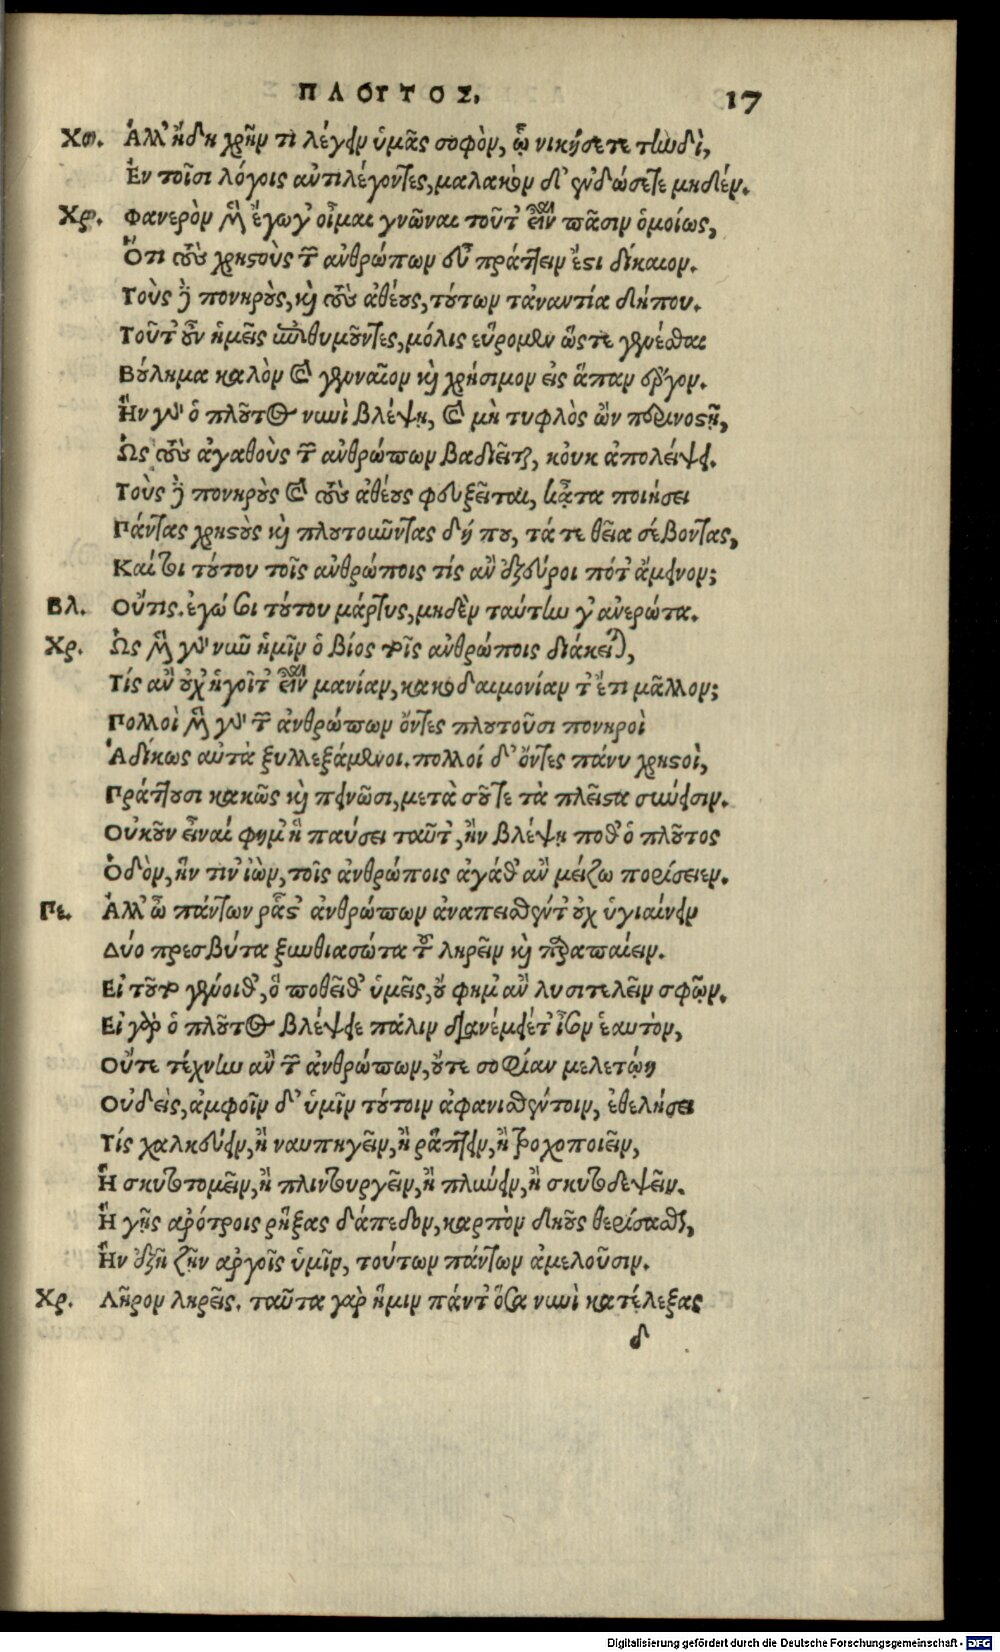 ΠΛΟΥΤΟΣ. 17
Χο. Ἀλλ' ἤδη χρῆν τι λέγειν ὑμᾶς σοφὸν, ᾧ νικήσετε τηνδὶ,
Ἐν τοῖσι λόγοις ἀντιλέγοντες, μαλακὸν δ' ἐνδώσετε μηδέν.
Χρ. Φανερὸν μὲν ἔγωγ' οἶμαι γνῶναι τοῦτ' εἶναι πᾶσιν ὁμοίως,
Ὅτι τοὺς χρηστοὺς τῶν ἀνθρώπων εὖ πράττειν ἐστὶ δίκαιον.
Τοὺς δὲ πονηροὺς, καὶ τοὺς ἀθέους, τούτων τἀναντία δήπου.
Τοῦτ' οὖν ἡμεῖς ἐπιθυμοῦντες, μόλις εὕρομεν ὥστε γενέσθαι
Βούλημα καλὸν καὶ γενναῖον καὶ χρήσιμον εἰς ἅπαν ἔργον.
Ἢν γὰρ ὁ πλοῦτος νυνὶ βλέψῃ, καὶ μὴ τυφλὸς ὢν περινοστῇ,
Ὡς τοὺς ἀγαθοὺς τῶν ἀνθρώπων βαδιεῖται, κοὐκ ἀπολείψει.
Τοὺς δὲ πονηροὺς καὶ τοὺς ἀθέους φευξεῖται, κᾆτα ποιήσει
Πάντας χρηστοὺς καὶ πλουτοῦντας δή που, τά τε θεῖα σέβοντας,
Καί τοι τούτου τοῖς ἀνθρώποις τίς ἂν ἐξεύροι πότ' ἄμεινον;
Βλ. Οὔτις. ἐγώ σοι τούτου μάρτυς, μηδὲν ταύτην γ' ἀνερώτα.
Χρ. Ὡς μὲν γὰρ νῦν ἡμῖν ὁ βίος τοῖς ἀνθρώποις διάκειται,
Τίς ἂν οὐχ ἡγοῖτ' εἶναι μανίαν, κακοδαιμονίαν τ' ἔτι μᾶλλον;
Πολλοὶ μὲν γὰρ τῶν ἀνθρώπων ὄντες πλουτοῦσι πονηροὶ
Ἀδίκως αὐτὰ ξυλλεξάμενοι. πολλοί δ' ὄντες πάνυ χρηστοὶ,
Πράττουσι κακῶς καὶ πεινῶσι, μετὰ σοῦ τε τὰ πλεῖστα σύνεισιν.
Οὐκοῦν εἶναί φημ' ἢ παύσει ταῦτ', ἢν βλέψῃ ποθ' ὁ πλοῦτος
Ὁδὸν, ἥν τιν' ἰὼν, τοῖς ἀνθρώποις ἀγάθ' ἂν μείζω πορίσειεν.
Πε. Ἀλλ' ὦ πάντων ῥᾷστ' ἀνθρώπων ἀναπεισθέντ' οὐχ ὑγιαίνειν
Δύο πρεσβύτα ξυνθιασώτα τοῦ ληρεῖν καὶ παραπαίειν.
Εἰ τοῦτο γένοιθ', ὃ ποθεῖθ' ὑμεῖς, οὔ φημ' ἂν λυσιτελεῖν σφῷν.
Εἰ γὰρ ὁ πλοῦτος βλέψειε πάλιν διανέμειέτ' ἴσον ἑαυτὸν,
Οὔτε τέχνην ἂν τῶν ἀνθρώπων, οὔτε σοφίαν μελετῴη
Οὐδεὶς, ἀμφοῖν δ' ὑμῖν τούτοιν ἀφανισθέντοιν, ἐθελήσει
Τίς χαλκεύειν, ἢ ναυπηγεῖν, ἢ ῥάπτειν, ἢ τροχοποιεῖν,
Ἢ σκυτοτομεῖν, ἢ πλινθουργεῖν, ἢ πλύνειν, ἢ σκυτοδεψεῖν.
Ἢ γῆς ἀρότροις ῥήξας δάπεδον, καρπὸν δηοῦς θερίσασθαι,
Ἢν ἐξῇ ζῇν ἀργοῖς ὑμῖν, τούτων πάντων ἀμελοῦσιν.
Χρ. Λῆρον ληρεῖς. ταῦτα γὰρ ἥμιν πάντ' ὅσα νυνὶ κατέλεξας
δ
Digitalisierung gefördert durch die Deutsche Forschungsgemeinschaft - DFG